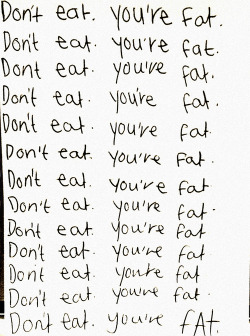 Don't eat. you're fat.
Don't eat. you're fat.
Don't eat. you're fat.
Don't eat. you're fat.
Don't eat. you're fat.
Don't eat. you're fat.
Don't eat. you're fat.
Don't eat. you're fat.
Don't eat. you're fat
Don't eat. you're fat.
Don't eat. you're fat
Don't eat. you're fat.
Don't eat. you're fAt.